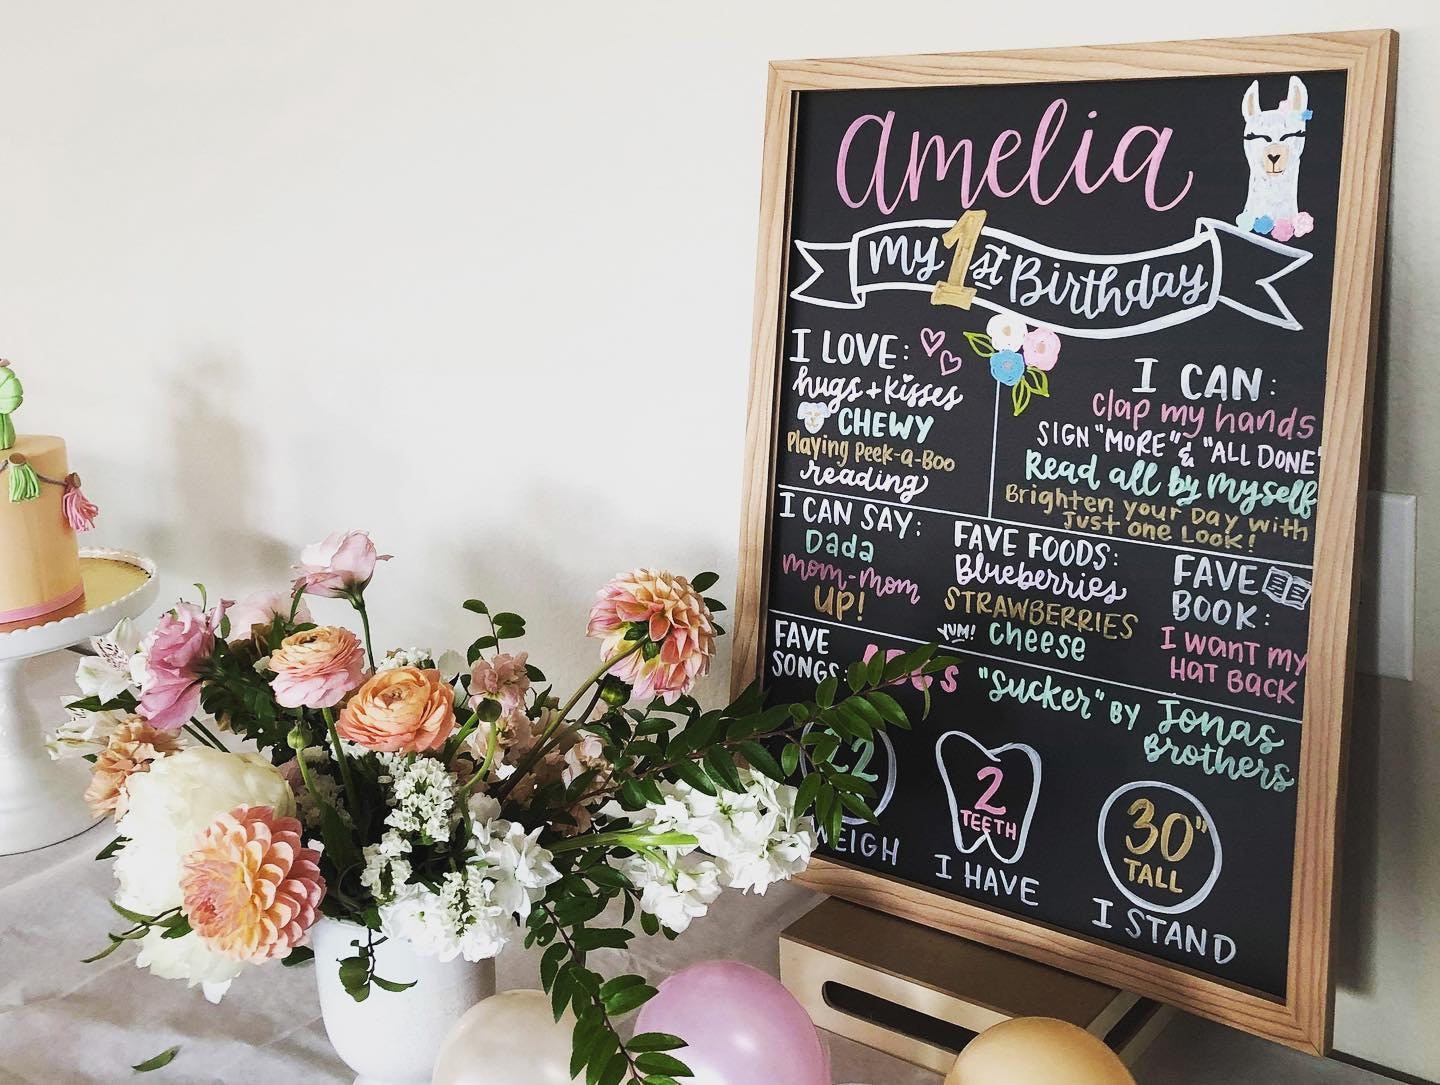 Amelia
My 1st Birthday
I LOVE:
hugs + kisses
CHEWY
Playing Peek-a-Boo
reading
I CAN:
Clap my hands
SIGN "MORE" & "ALL DONE"
Read all by myself
Brighten your Day with
Just one Look!
I CAN SAY:
Dada
mom-mom
UP!
FAVE FOODS:
Blueberries
STRAWBERRIES
YUM! Cheese
FAVE
BOOK:
I want my
HAT BACK
FAVE
SONGS:
"Sucker" BY Jonas
Brothers
22
WEIGH
2
TEETH
I HAVE
30"
TALL
I STAND